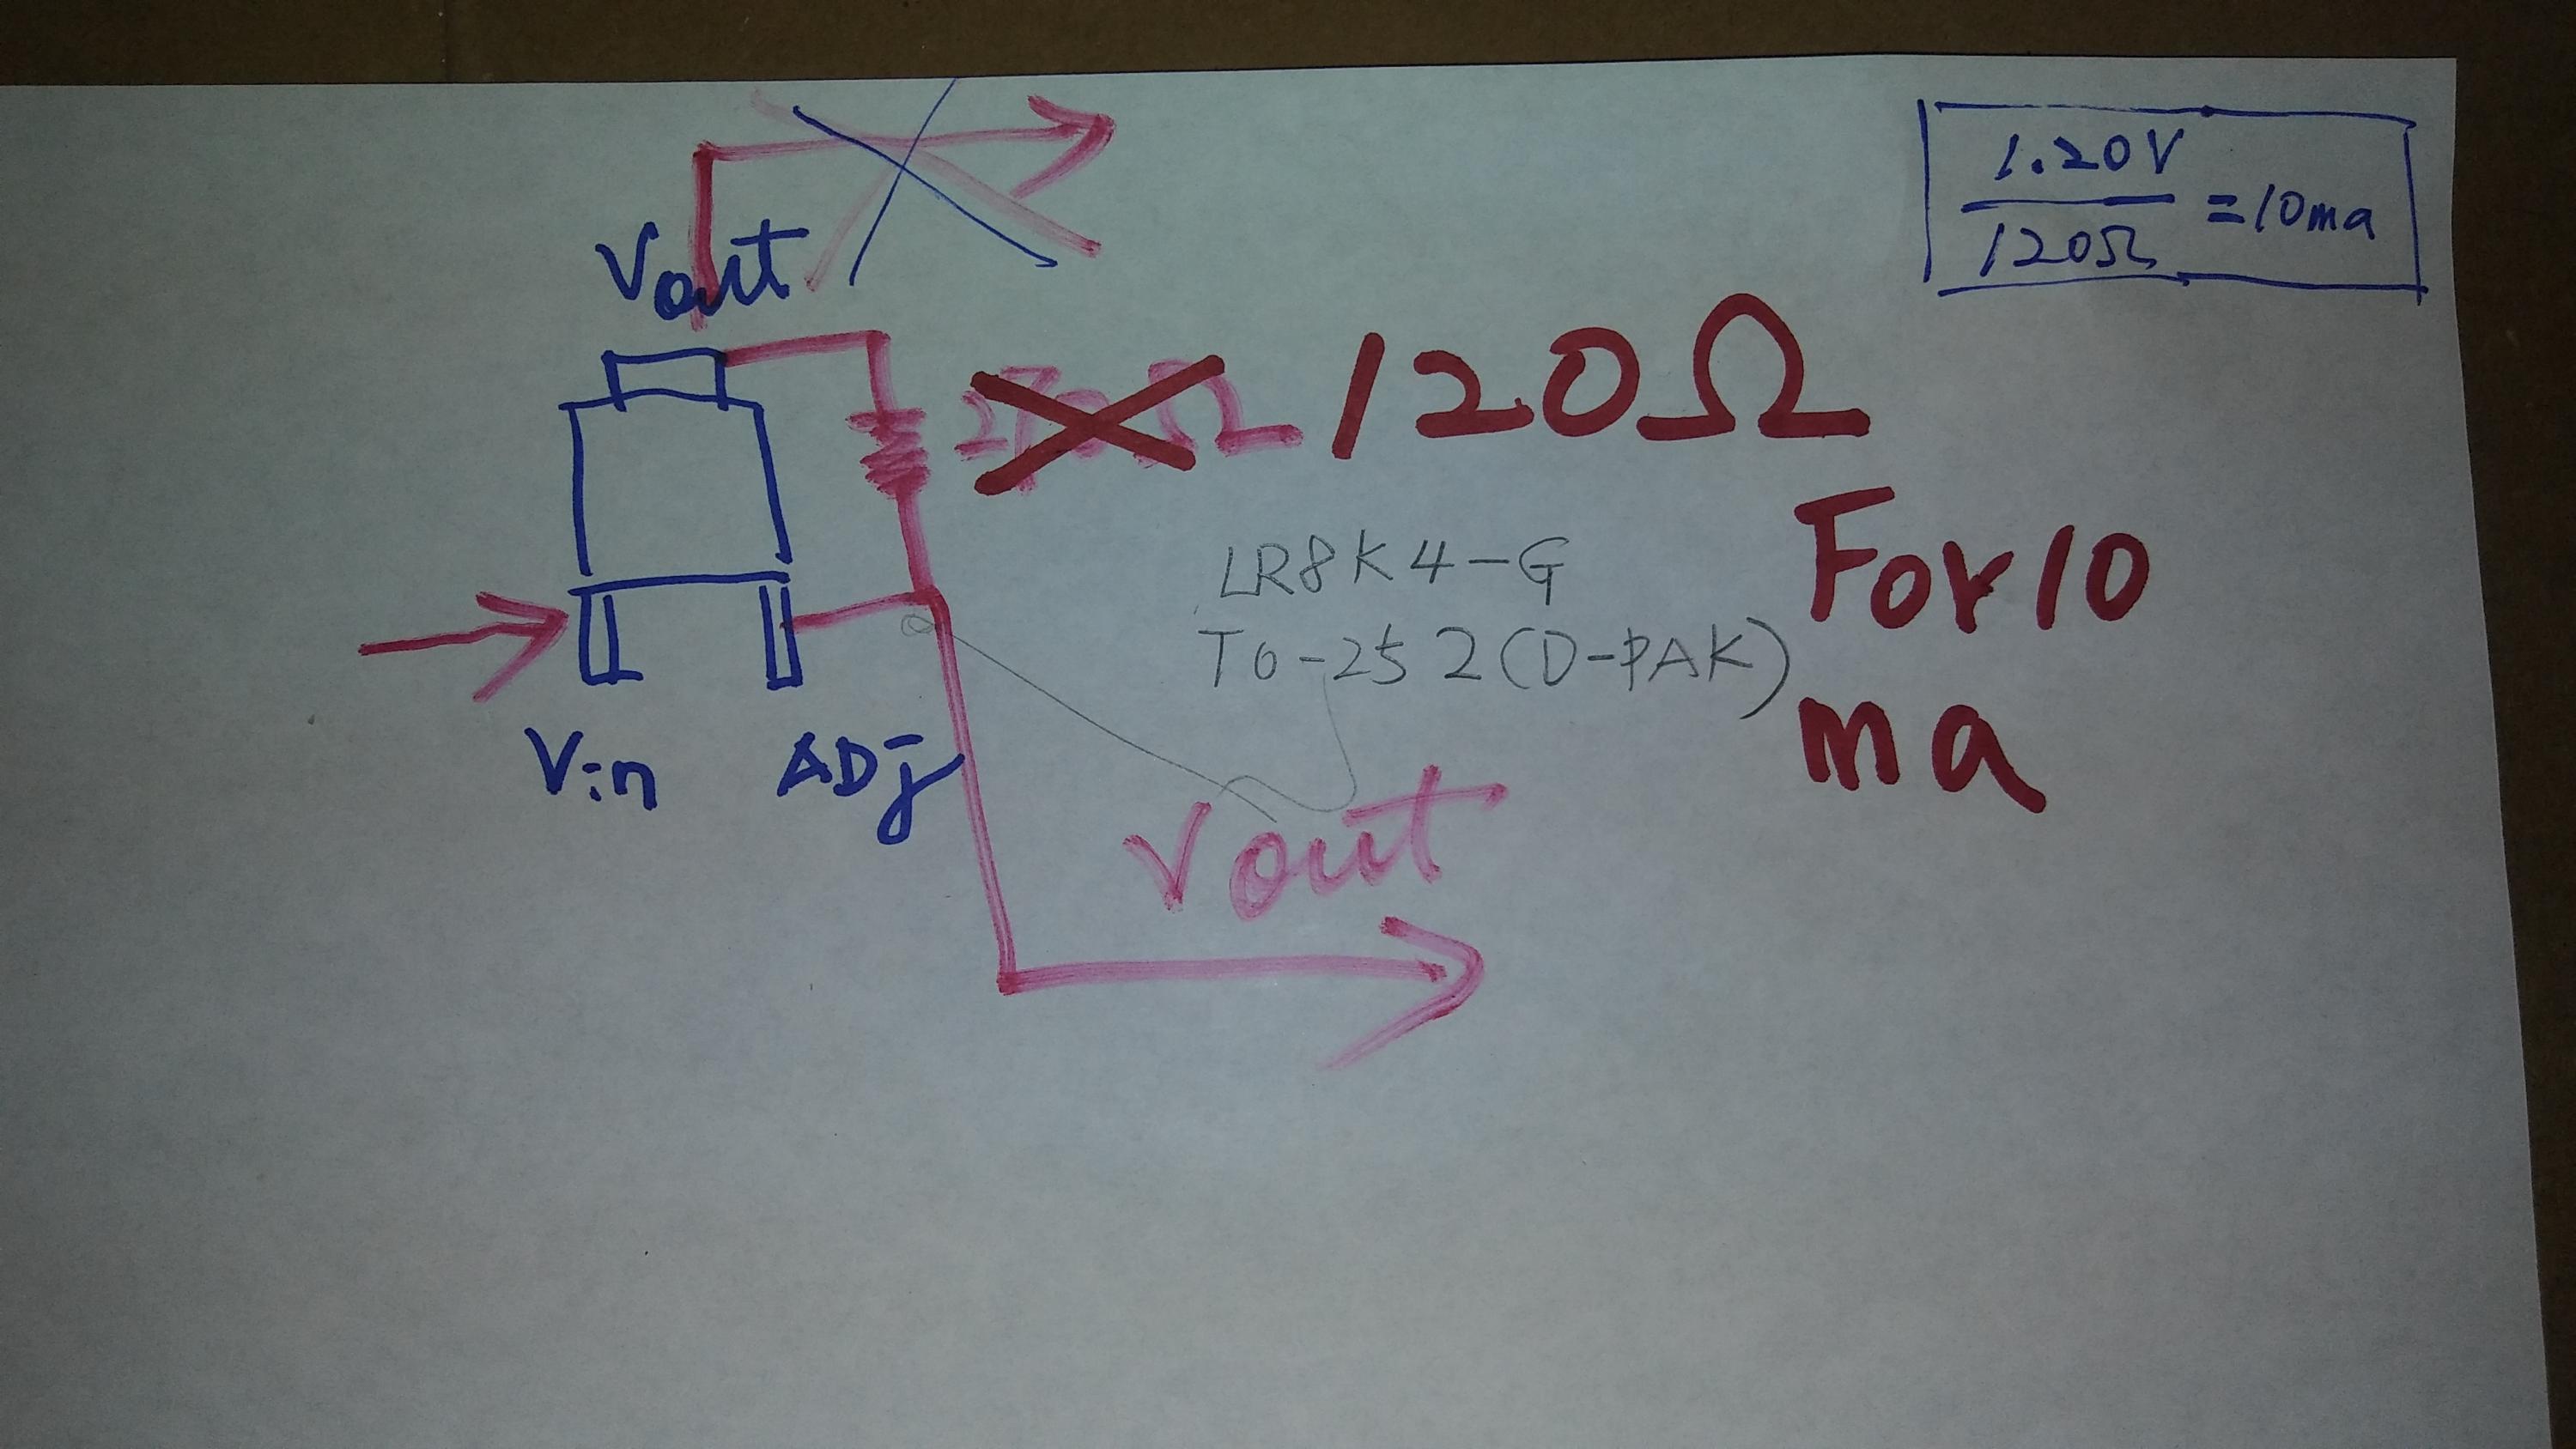 1.20V
120Ω
=10ma
Vout
270Ω 120Ω
For 10
ma
LR8K4-G
TO-252(D-PAK)
Vin ADj
Vout